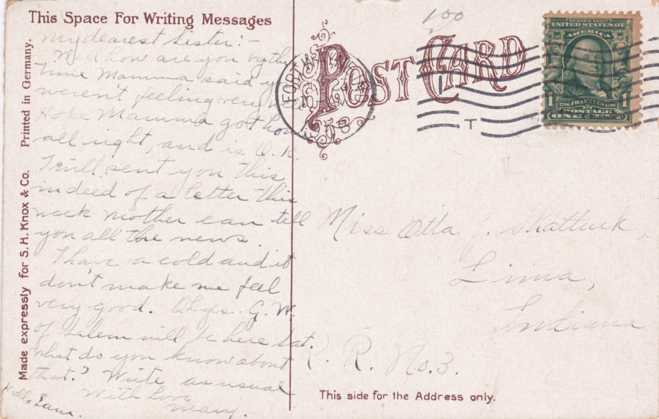 This Space For Writing Messages
POST CARD
100
UNITED STATES OF AMERICA
POSTAGE
ONE
T
Printed in Germany.
Made expressly for S. H. Knox & Co.
My dearest Sister:-
Well how are you by the
time Mamma said you
weren't feeling very
Mamma got home
all right, and is O.K.
I will sent you this
indeed of a letter this
week Mother can tell
you all the news.
I have a cold and it
don't make me feel
very good. Chas. G. W.
of Salem will be here Sat.
What do you know about
that? Write as usual
With Love
Mary.
Miss Otta Shattuck,
Lima,
Indiana
R. R. No. 3.
This side for the Address only.